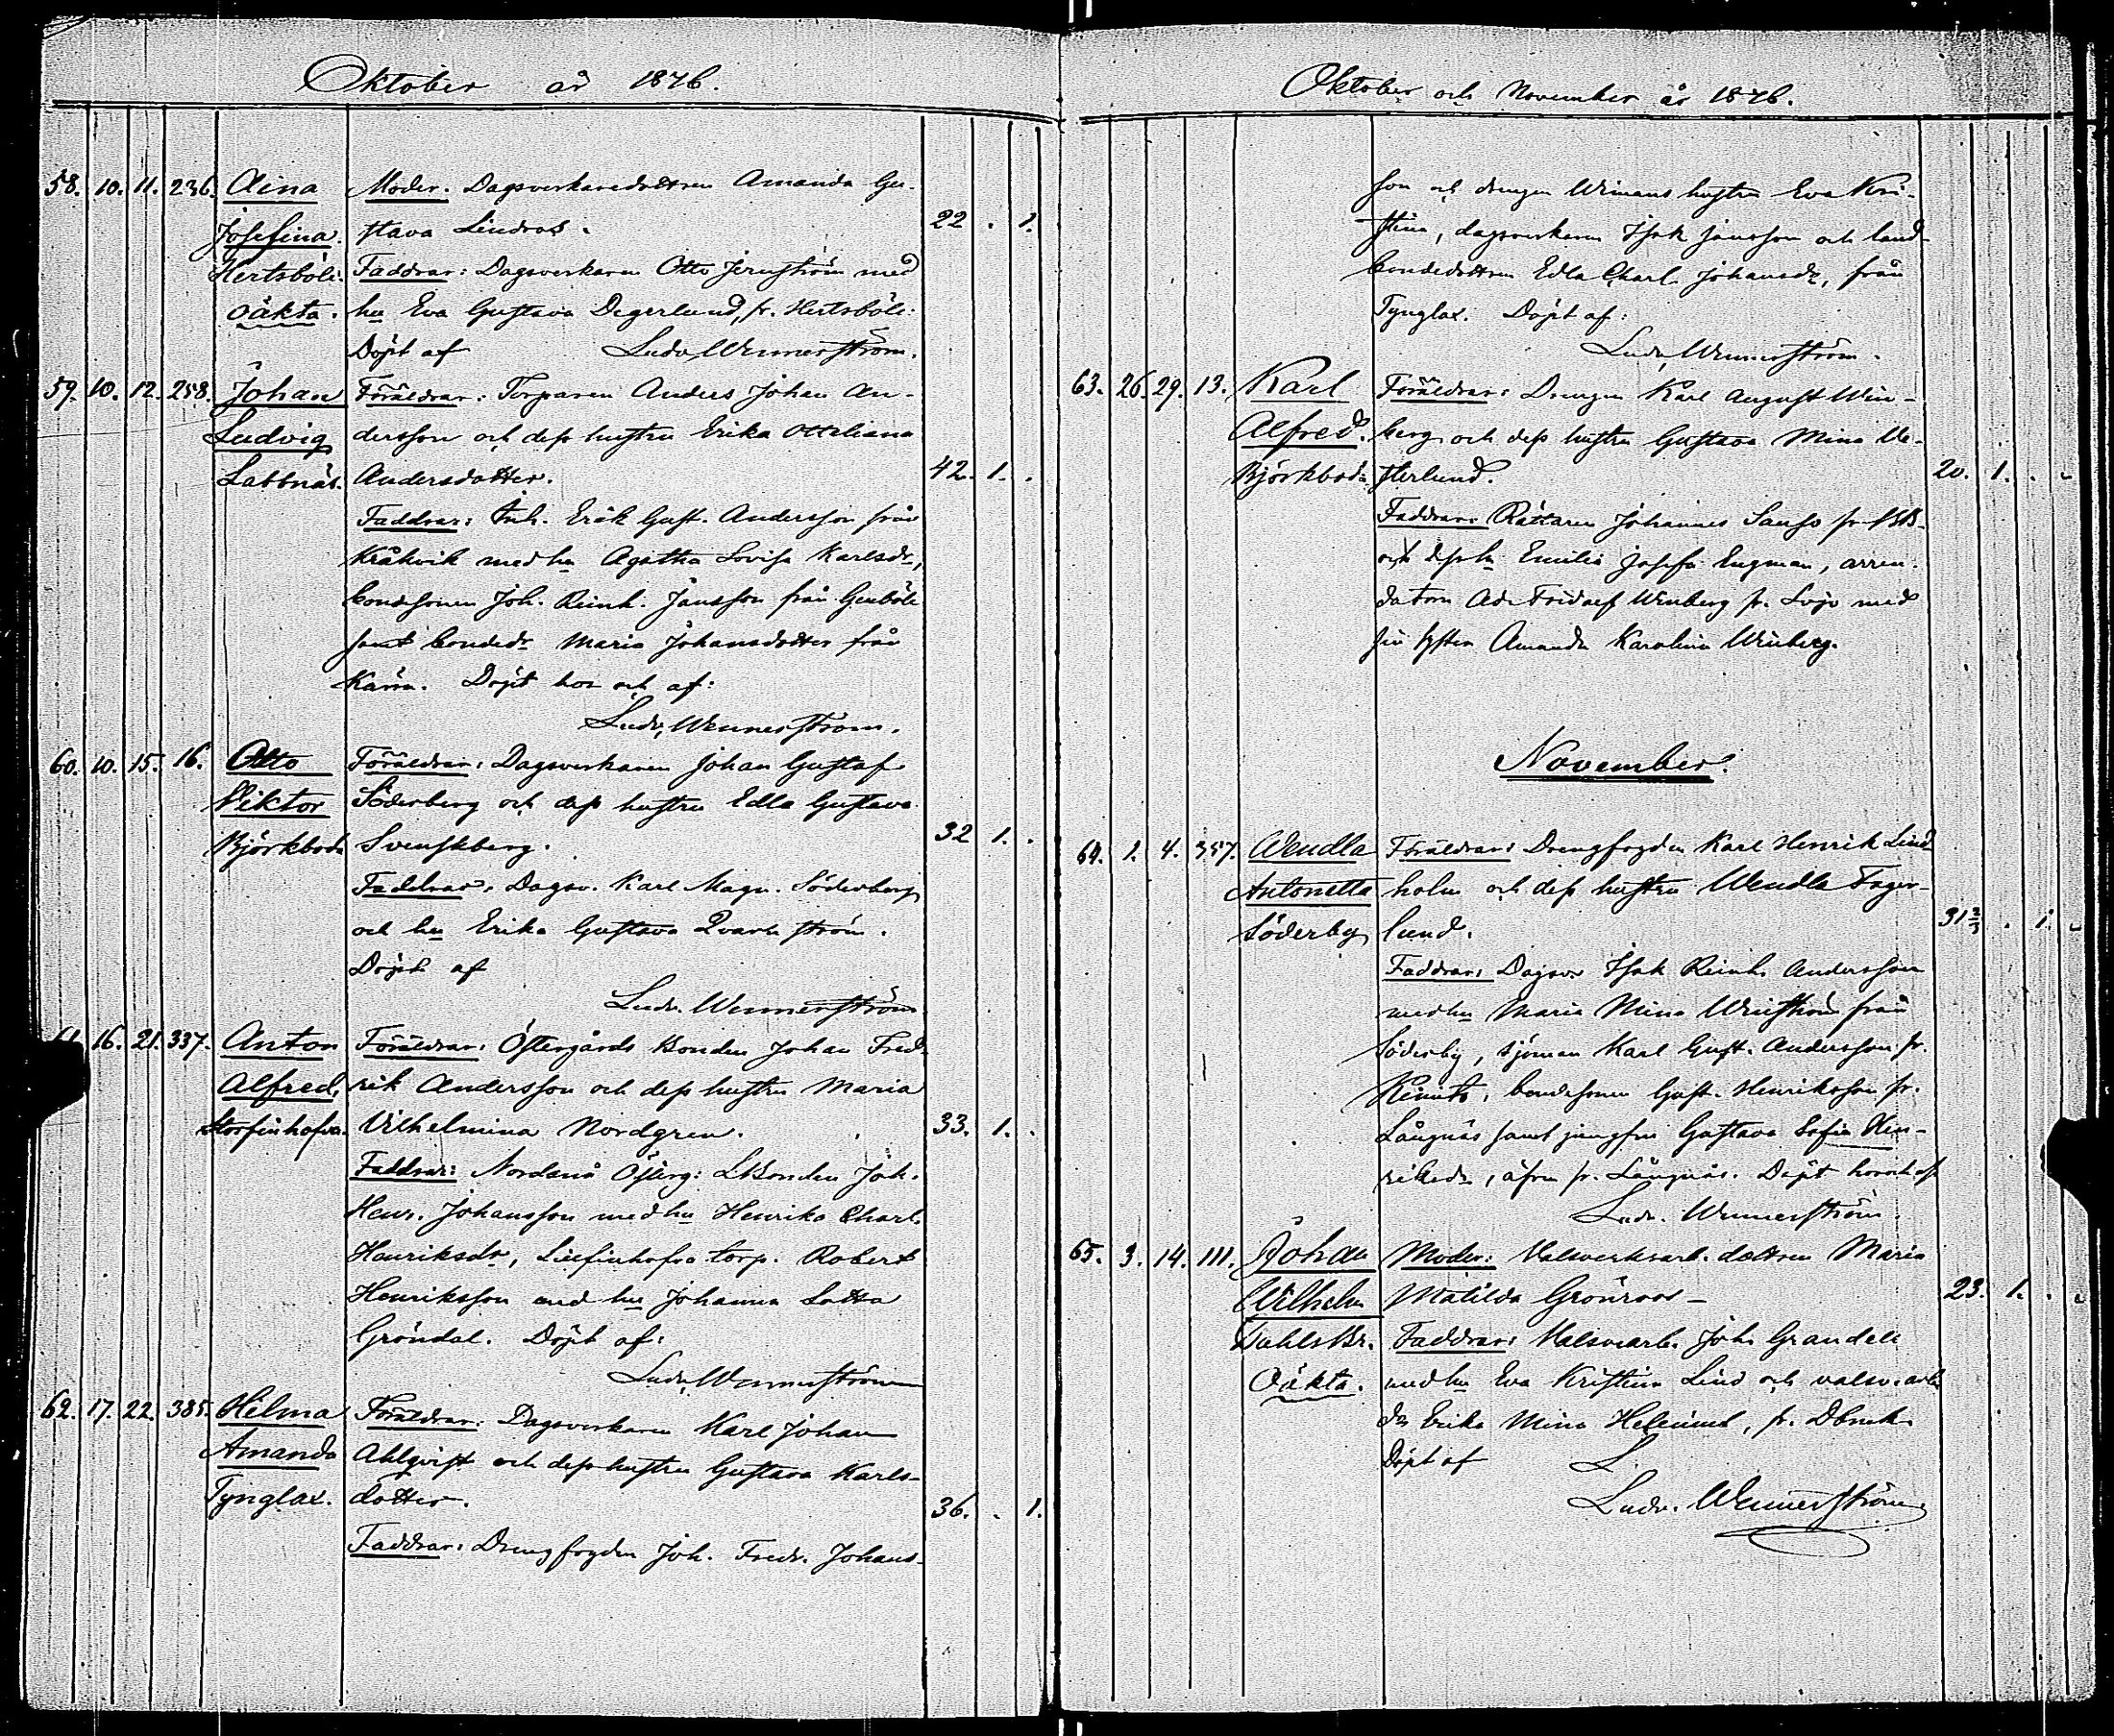 Oktober år 1876.
58. 10. 11. 236. Aina Moder. Dagsverkaredottren Amanda Gu-
Josefina. stava Lindros. 22 . 1.
Hertsböle. Faddrar: Dagsverkaren Otto Jernström med
oäkta. hu Eva Gustava Degerlund, fr. Hertsböle:
Döpt af Ludv. Wennerström.
59. 10. 12. 258. Johan Föräldrar: Torparen Anders Johan An-
Ludvig dersson och dess hustru Erika Ottiliana
Labbnäs. Andersdotter. 42. 1. .
Faddrar: Inh. Erik Gust. Andersson från
Kråkvik med hu Agatha Lovisa Karlsdr,
bondesonen Joh. Reinh. Jansson från Genböle
samt bondedr Maria Johansdotter från
Kärra. Döpt hos och af:
Ludv. Wennerström.
60. 10. 15. 16. Otto Föräldrar: Dagsverkaren Johan Gustaf
Viktor Söderberg och dess hustru Edla Gustava
Björkboda Svenskberg. 32 1. .
Faddrar: Dagsv. Karl Magn. Söderberg
och hu Erika Gustava Qvarnström.
Döpt af
Ludv. Wennerström
61. 16. 21. 337. Anton Föräldrar: Östergårds Bonden Johan Fred-
Alfred, rik Andersson och dess hustru Maria
Storfinhofva. Vilhelmina Nordgren. 33. 1. .
Faddrar: Nordanå Österg: LBonden Joh.
Henr. Johansson med hu Henrika Charl.
Henriksdr, Lillfinhofva torp. Robert
Henriksson med hu Johanna Lotta
Gröndal. Döpt af:
Ludv. Wennerström
62. 17. 22. 385. Hilma Föräldrar: Dagsverkaren Karl Johan
Amanda Ahlqvist och dess hustru Gustava Karls-
Tynglax. dotter. 36. . 1.
Faddrar: Drengfogden Joh. Fredr. Johans-
Oktober och November år 1876.
son och drengen Wimans hustru Eva Kri-
stina, dagsverkaren Isak Jansson och land-
bondedottren Edla Charl. Johansdr, från
Tynglax. Döpt af:
Ludv. Wennerström.
63. 26. 29. 13. Karl Föräldrar: Drengen Karl August Win-
Alfred. berg och dess hustru Gustava Mina We-
Björkboda sterlund. 20. 1. .
Faddrar: Rättaren Johannes fr.
och dess hu Emilia Josefa Engman, arren-
datorn Ad. Fridolf Winberg fr. med
sin syster Amanda Karolina Winberg.
November.
64. 1. 4. 357. Wendla Föräldrar: Drengfogden Karl Henrik Lind-
Antonetta holm och dess hustru Wendla Fager-
Söderby lund. 31 . 1.
Faddrar: Dagsv. Isak Reinh. Andersson
med hu Maria Mina från
Söderby, sjöman Karl Gust. Andersson fr.
Kimito, bondesonen Gust. Henriksson fr.
Långnäs samt jungfru Gustava Sofia Hen-
riksdr, äfven fr. Långnäs. Döpt hos och af
Ludv. Wennerström.
65. 3. 14. 111. Johan Moder: Valsverksarb. dottren Maria
Wilhelm Matilda Grönroos— 23. 1. .
Dahlsbr. Faddrar: Valsv.arb. Joh. Grandell
Oäkta. med hu Eva Kristina Lind och valsv.arb.
dr Erika Mina Helenius, fr. Dbruk.
Döpt af L
Ludv. Wennerström.